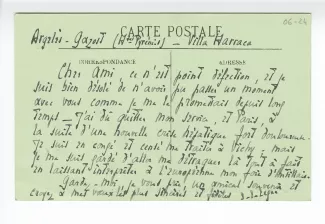 06-24
CARTE POSTALE
Argelès-Gazost (Htes Pyrénées) — Villa Harraca
CORRESPONDANCE ADRESSE
Cher Ami, ce n'est point défection, et je
suis bien désolé de n'avoir pu passer un moment
avec vous comme je me le promettais depuis long
temps — J'ai dû quitter mon service, et Paris, à
la suite d'une nouvelle crise hépatique fort douloureuse.
Je suis en congé et censé me traiter à Vichy — mais
je me suis gardé d'aller me détraquer là tout à fait
en laissant interpréter à l'européenne mon foie d'
Gardez-moi, je vous prie, un amical souvenir et
croyez à mes voeux les plus sincères et